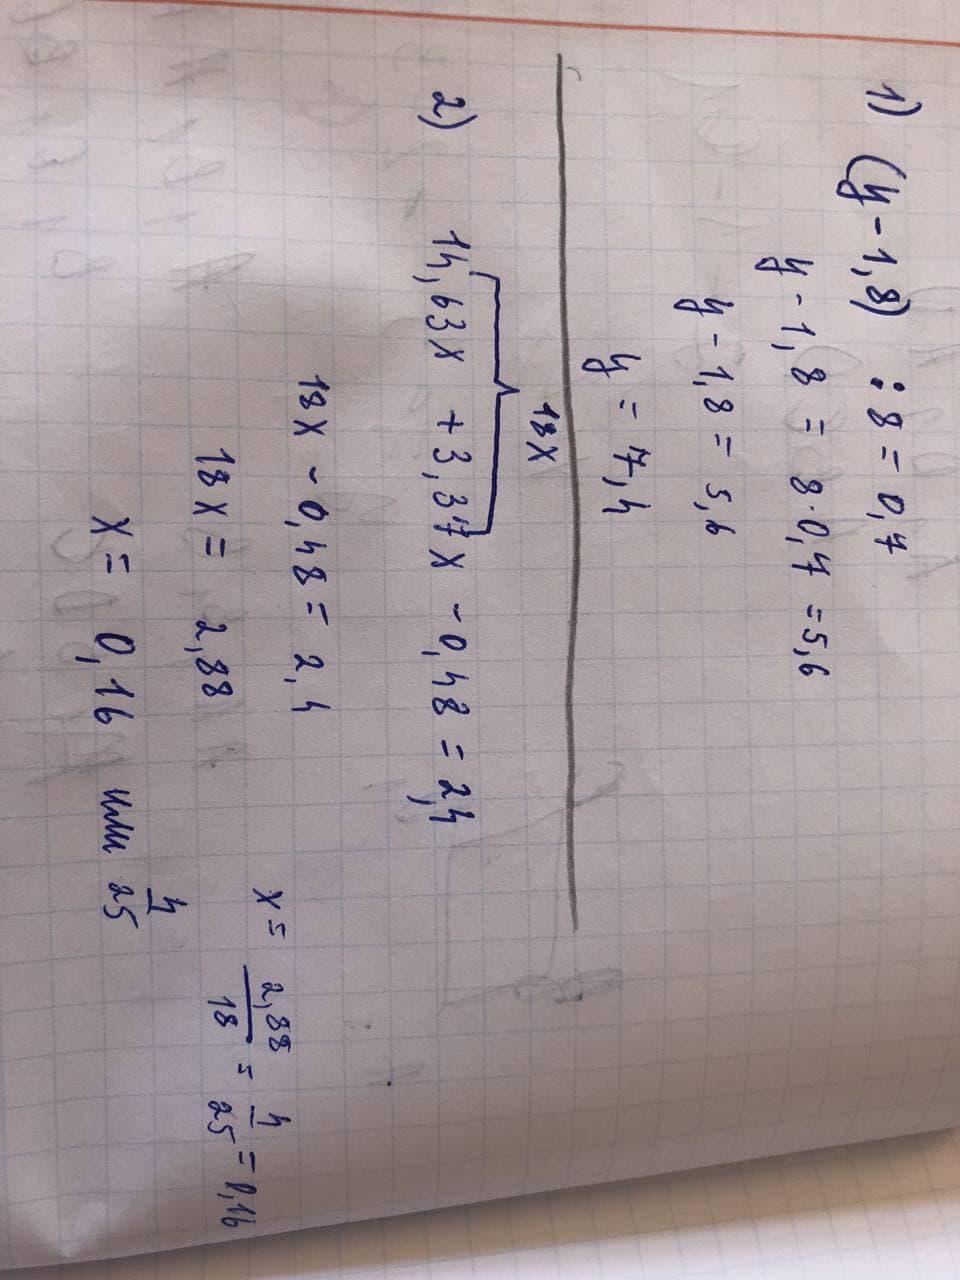 1) (y - 1,8) : 8 = 0,7
y - 1,8 = 8 · 0,7 = 5,6
y - 1,8 = 5,6
y = 7,4
18x
2) 14,63x + 3,37x - 0,48 = 2,4
18x - 0,48 = 2,4
18x = 2,88
x = 0,16 или 4/25
x = 2,88/18 = 4/25 = 0,16